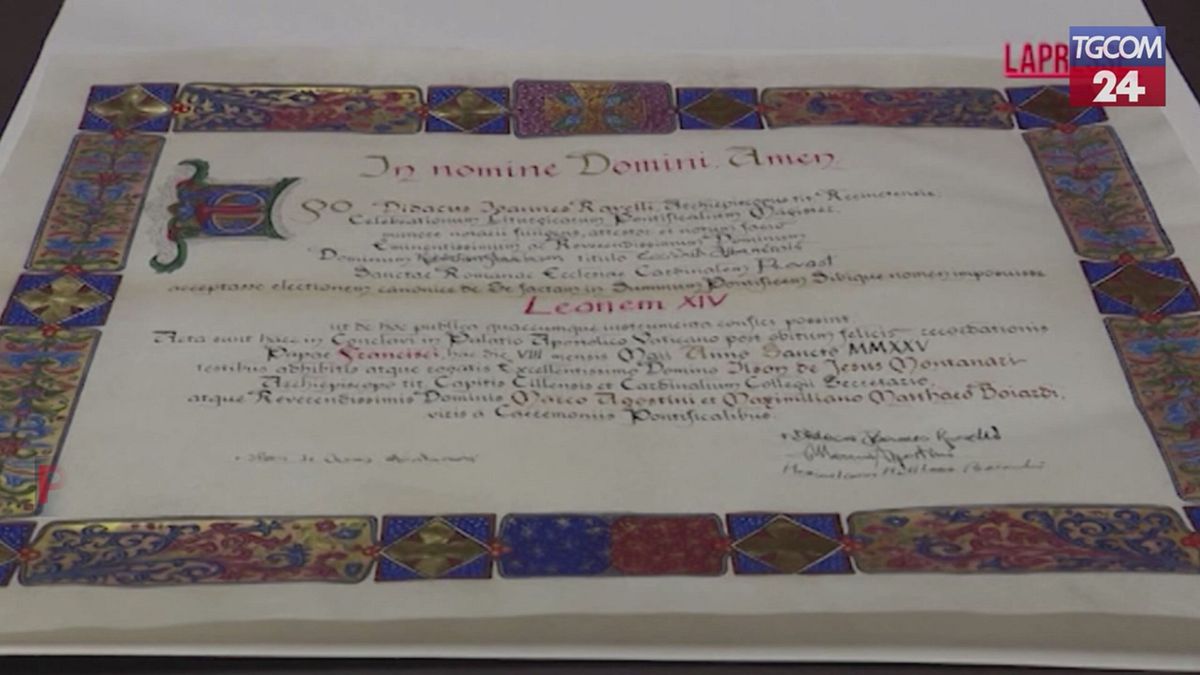 TGCOM
24
LAPR
In nomine Domini. Amen.
EGO Didacus Ioannes Ravelli, Archiepiscopus tit. Recinetensis,
Celebrationum Liturgicarum Pontificalium Magister,
munere notarii fungens, attestor et notum facio
Eminentissimum ac Reverendissimum Dominum
Dominum titulo
Sanctae Romanae Ecclesiae Cardinalem Prevost
acceptasse electionem canonice de Se factam in Summum Pontificem Sibique nomen imposuisse
Leonem XIV
ut de hac publica quaecumque instrumenta confici possint.
Acta sunt haec in Conclavi in Palatio Apostolico Vaticano post obitum felicis recordationis
Papae Francisci, hac die VIII mensis Maii Anno Sancto MMXXV
testibus adhibitis atque rogatis Excellentissimo Domino Ilson de Jesus Montanari
Archiepiscopo tit. Capitis Cillensis et Cardinalium Collegii Secretario,
atque Reverendissimis Dominis Marco Agostini et Maximiliano Matthaeo Boiardi,
viris a Caeremoniis Pontificalibus.
P